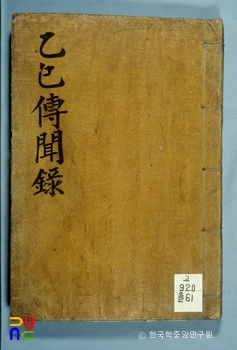 乙巳傳聞錄
고
920
을61
© 한국학중앙연구원